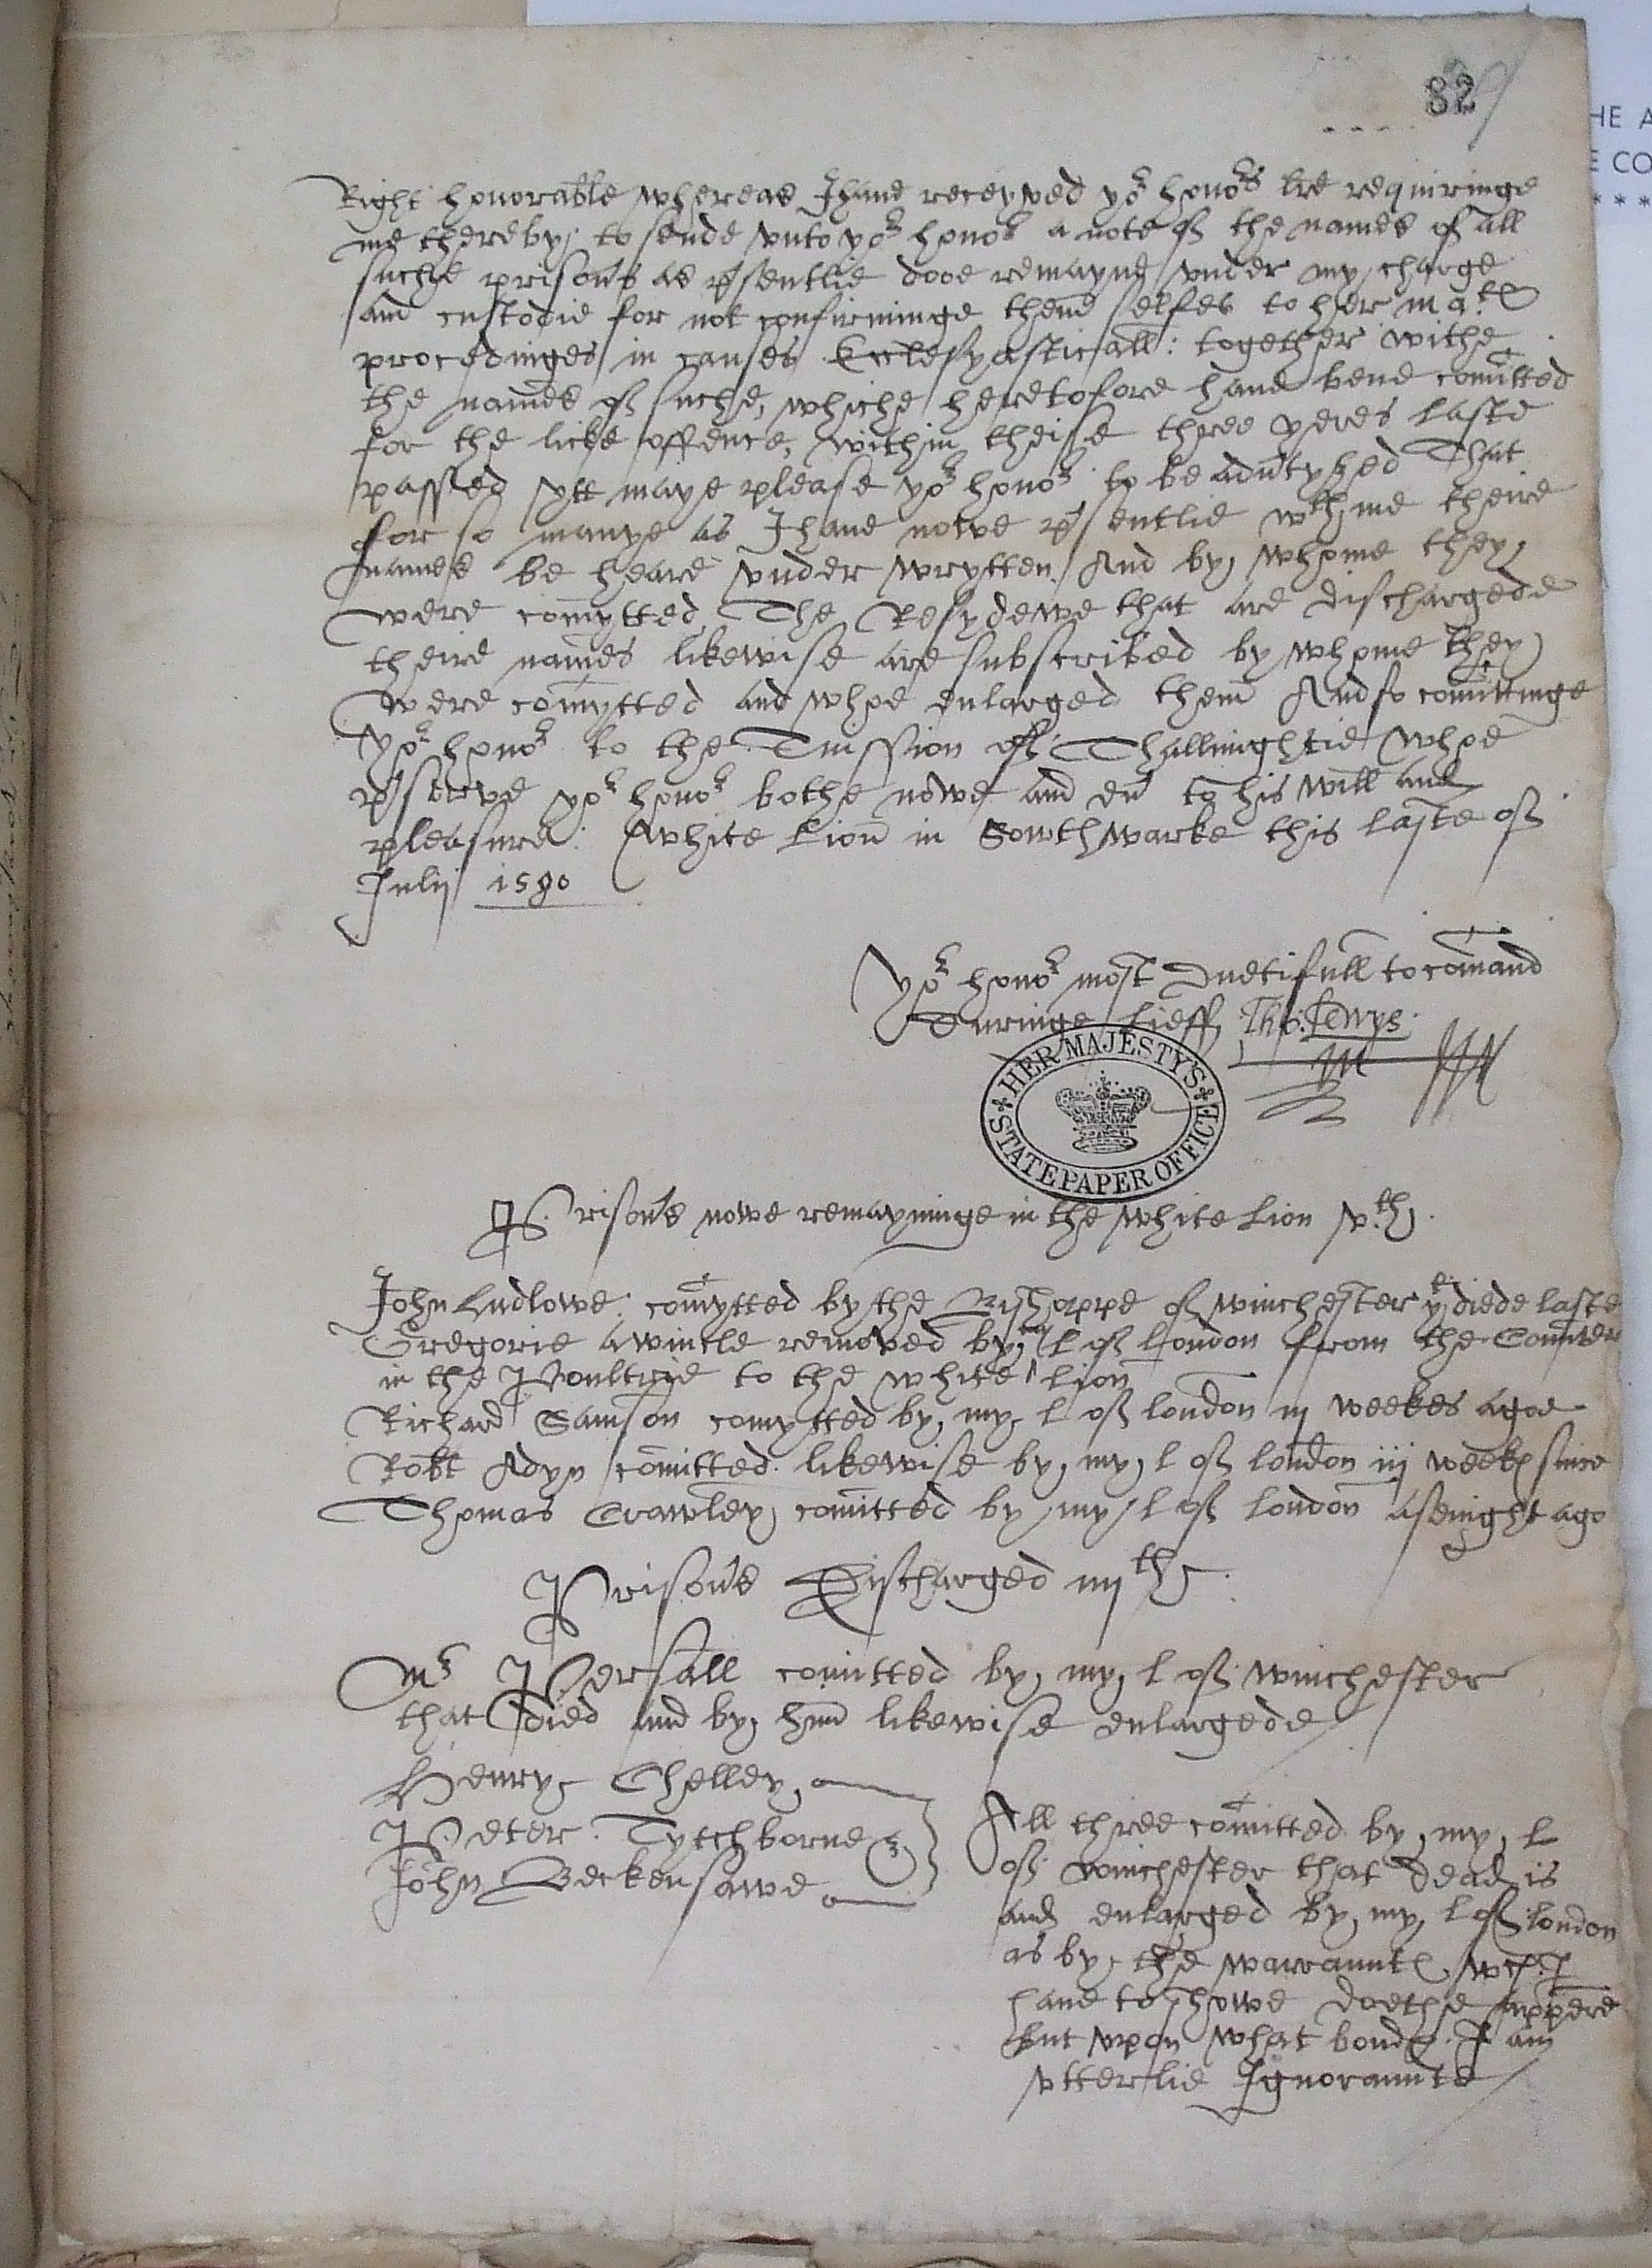 82
HE A
E CO
* * *
Right honorable whereas I haue receyved yor honors lre requiringe
me thereby to sende vnto yor honor a note of the names of all
suche prisons as psentlie dooe remayne vnder my charge
and custodie for not confirminge them selfes to her matie
procedinges in causes Ecclesyasticall: together withe
the names of suche, whiche heretofore haue bene comitted
for the licke offence, within theise three yeres laste
passed ytt maye please yor honor to be adutysed That
for so manye as I haue nowe psentlie wth me theire
names be heare vnder wrytten. And by whome they
were comytted, The Resydewe that are dischargede
theire names likewise are subscribed by whome they
were comytted and whoe enlarged them And so comittinge
yor honor to the Tuission of Thallmightie whoe
pserve yor honor bothe nowe and eu to his will and
pleasure: White Lion in Sowthwarke this laste of
Julij 1580
Yor honor most Duetifull to comand
Duringe lieff, Tho: Lewys.
HER MAJESTY'S
STATE PAPER OFFICE
Prisons nowe remayninge in the white Lion vth.
John Ludlowe comytted by the Bishoppe of winchester yt diede laste
Gregorie awincle removed by my L of London from the Counter
in the Poultrie to the white Lion
Richard Samson comytted by my L of london iij weekes agoe
Robt Adyn comitted likewise by my L of london iij weekes since
Thomas Crawley comitted by my L of london a senight ago
Prisons Discharged iiijth.
Mr Persall comitted by my L of winchester
that died and by him likewise enlargede
Henry Chelley
Peter Tytchborne
John Beckensawe
All three comitted by my L
of winchester that dead is
and enlarged by my L of london
as by the warauntes wch I
haue to showe doethe appere
but vpon what bondes I am
vtterlie Ignoraunte